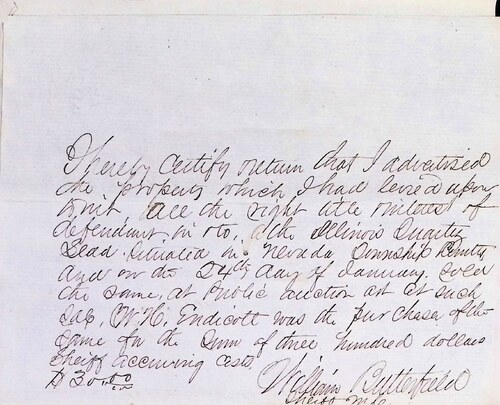 I hereby certify & return that I advertised
the property which I had levied upon
to wit, all the right title & interest of
defendant in & to, the Illinois Quartz
Lead. Situated in Nevada Township
And on the 24th day of January. sold
the same, at Public auction and at such
sale, W. H. Endicott was the purchaser of the
same for the sum of three hundred dollars
Sheriff accruing costs,
$30.00
William Butterfield
Sheriff